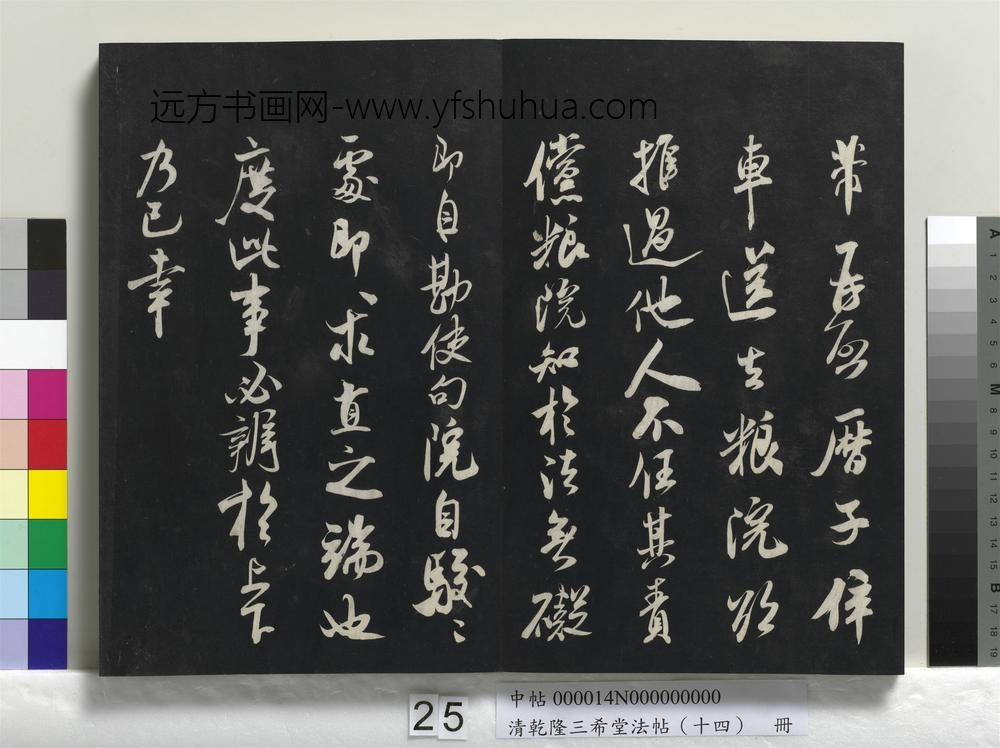 远方书画网-www.yfshuhua.com
車送去粮院
推過他人不任其責
儻粮院知於法無礙
即自勘使句院自駮〻
處即求直之端也
度此事必辨於上下
乃已幸
25
中帖 000014N000000000
清乾隆三希堂法帖（十四） 冊
A 1 2 3 4 5 6 M 8 9 10 11 12 13 14 15 B 17 18 19